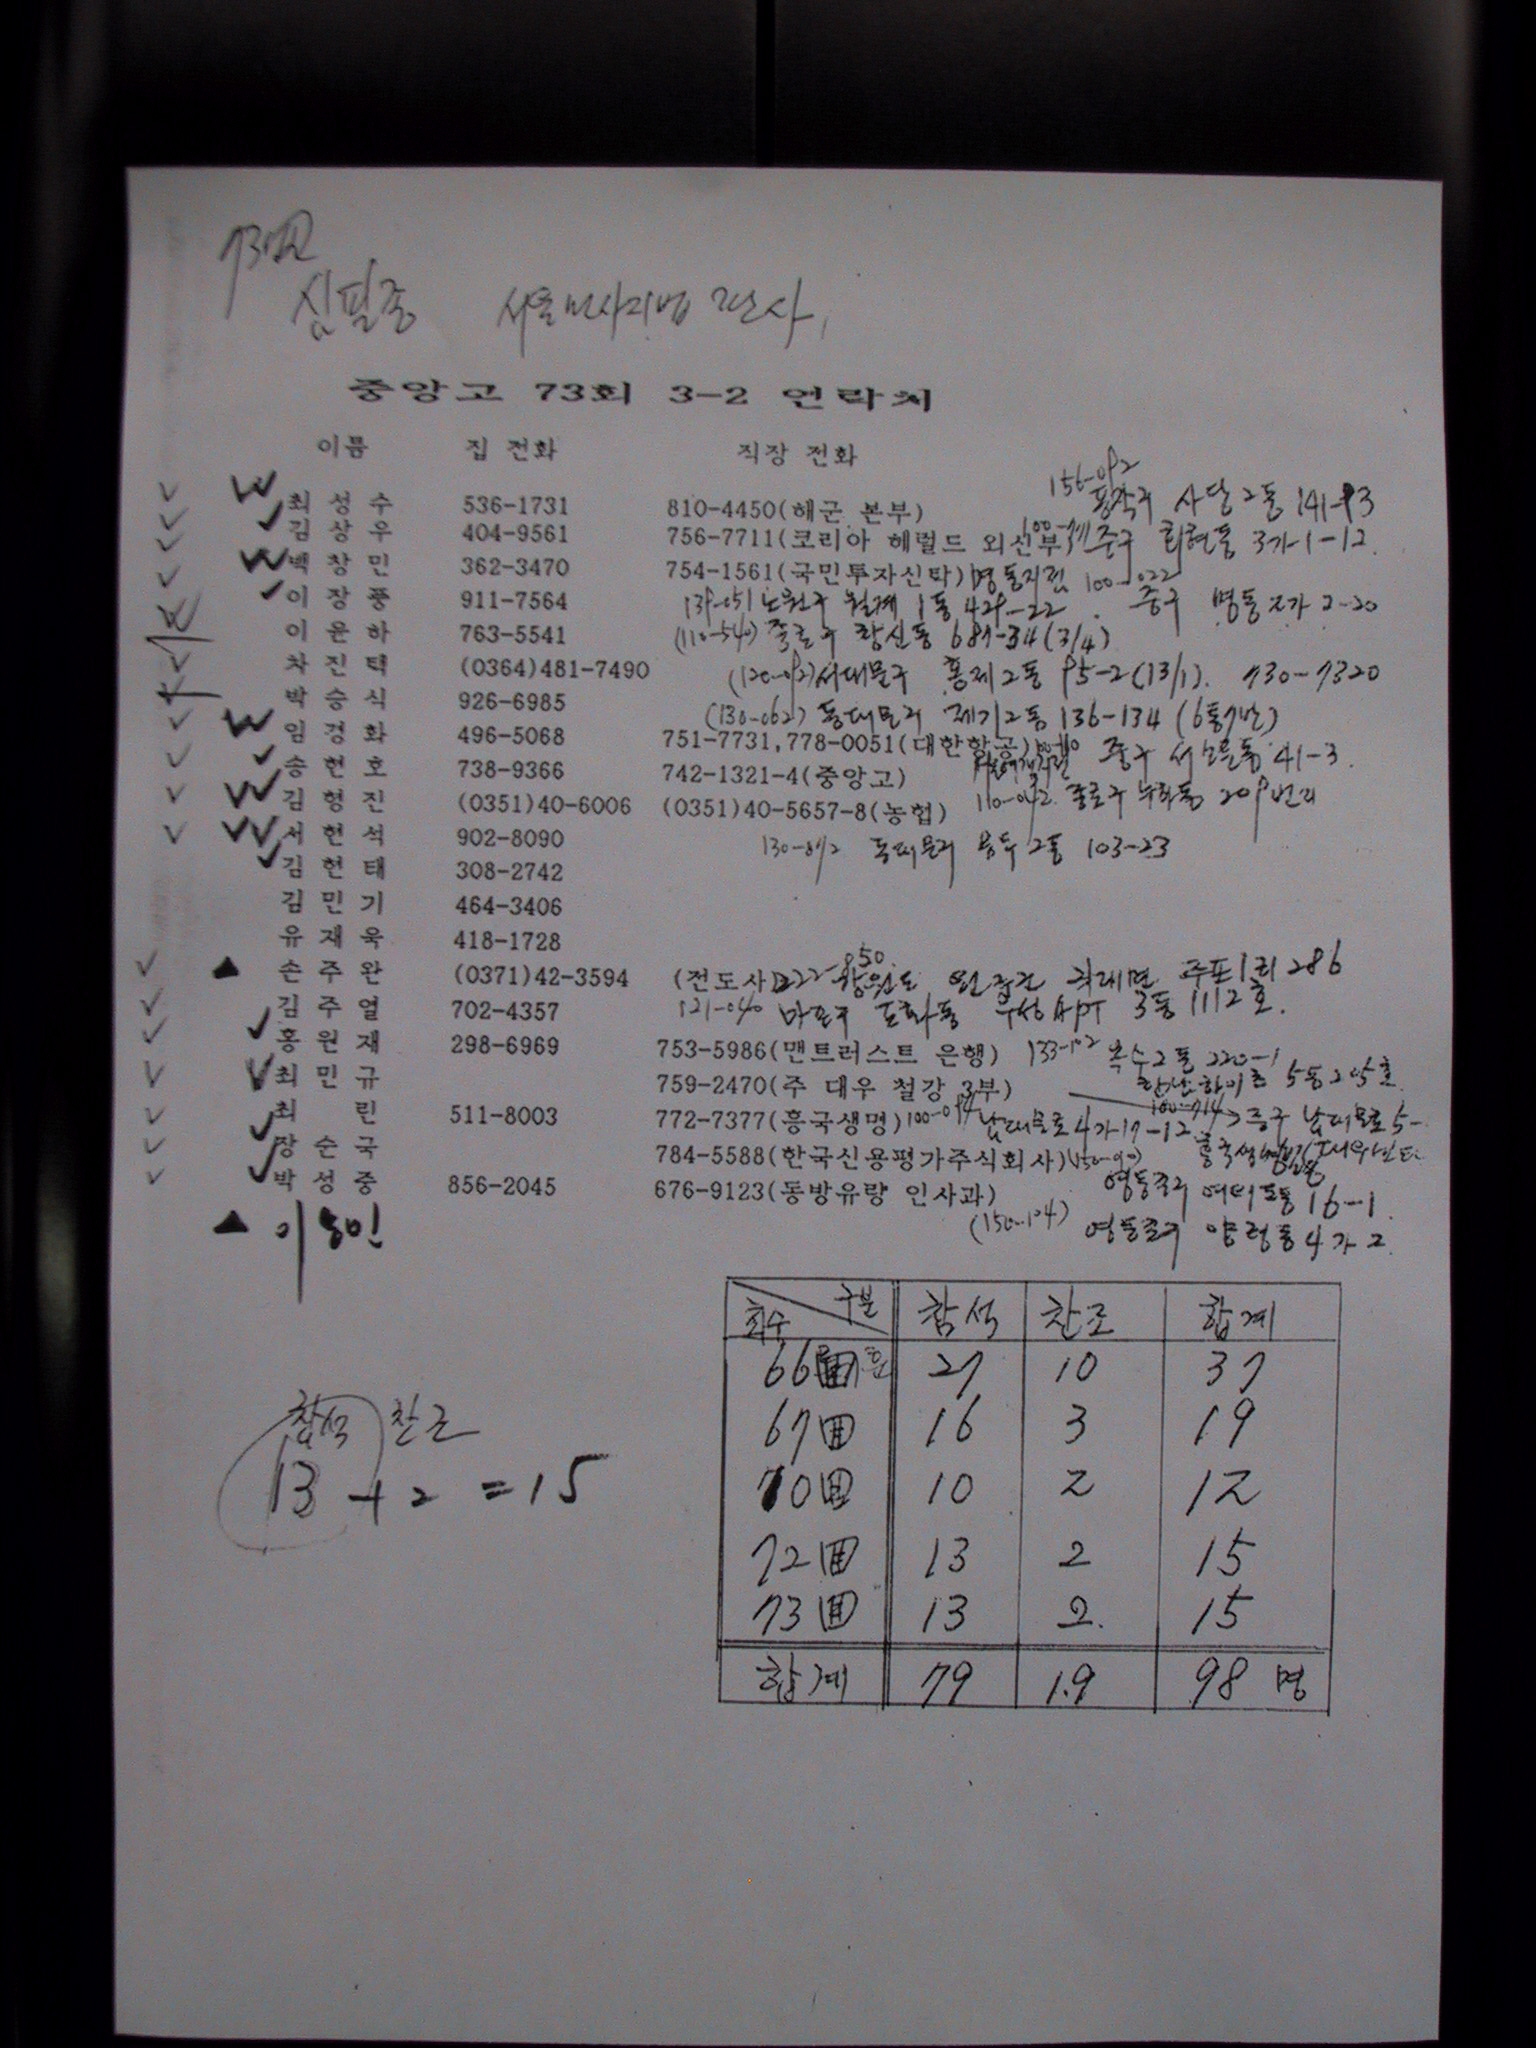 심필종 서울민사지법 판사,
중앙고 73회 3-2 연락처
이름 집 전화 직장 전화
156-092
최 성 수 536-1731 810-4450(해군 본부) 동작구 사당2동 141-93
김 상 우 404-9561 756-7711(코리아 헤럴드 외신부) 중구 회현동 3가-1-12
백 창 민 362-3470 754-1561(국민투자신탁) 명동지점 100-022
이 장 풍 911-7564 139-051 노원구 월계 1동 429-22 중구 명동 2가 2-20
이 윤 하 763-5541 (110-540) 종로구 창신동 687-34(3/4)
차 진 택 (0364)481-7490 (120-092) 서대문구 홍제2동 95-2(13/1). 730-7320
박 승 식 926-6985 (130-062) 동대문구 제기2동 136-134 (6통7반)
임 경 화 496-5068 751-7731,778-0051(대한항공) 중구 서소문동 41-3.
송 헌 호 738-9366 742-1321-4(중앙고)
김 형 진 (0351)40-6006 (0351)40-5657-8(농협) 110-042. 종로구 누하동 209번지
서 헌 석 902-8090 130-872 동대문구 용두2동 103-23
김 헌 태 308-2742
김 민 기 464-3406
유 재 욱 418-1728
손 주 완 (0371)42-3594 (전도사) 222-850 강원도 원주군 귀래면 주포1리 286
김 주 열 702-4357 121-040 마포구 도화동 우성APT 3동 1112호.
홍 원 재 298-6969 753-5986(맨트러스트 은행) 133-102 옥수2동 220-1
최 민 규 759-2470(주 대우 철강 3부) 한남하이츠 5동 205호
최 린 511-8003 772-7377(흥국생명) 100-094 남대문로 4가-17-12 100-714 중구 남대문로 5-
장 순 국 784-5588(한국신용평가주식회사) (150-010)
박 성 중 856-2045 676-9123(동방유량 인사과) 영등포구 여의도동 16-1
(150-104) 영등포구 양평동 4가 2
구분 회수 참석 찬조 합계
66回 27 10 37
67回 16 3 19
70回 10 2 12
72回 13 2 15
73回 13 2. 15
합계 79 1.9 98 명
참석 찬조
13 + 2 = 15